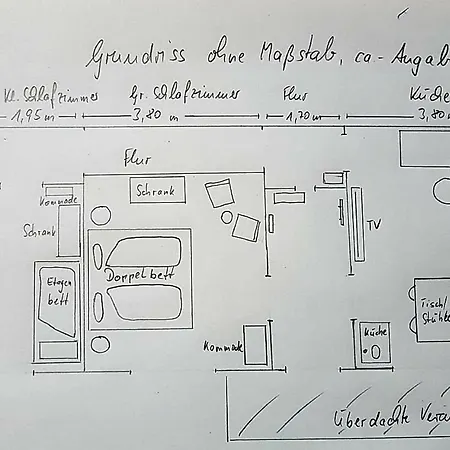 Grundriss ohne Maßstab, ca-Angab
Kl. Schlafzimmer Gr. Schlafzimmer Flur Küche
1,95 m 3,80 m 1,20 m 3,80
Flur
Schrank
Kommode
Schrank
TV
Etagen
bett
Doppelbett
Tisch/
Stühle
Kommode
Küche
Überdachte Veran